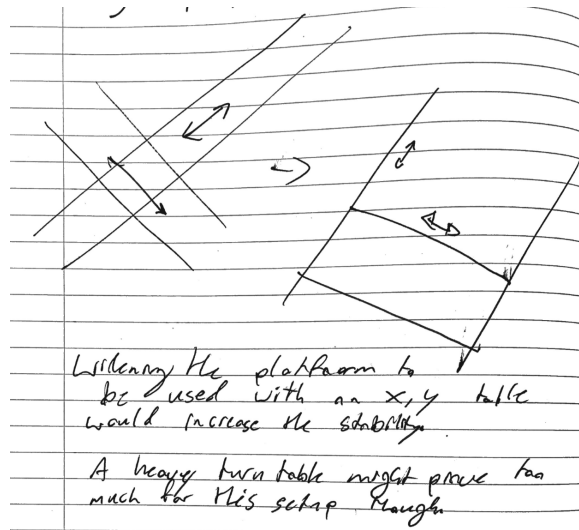 Widening the platform to
be used with an x,y table
would increase the stability
A heavy turntable might prove too
much for this setup though